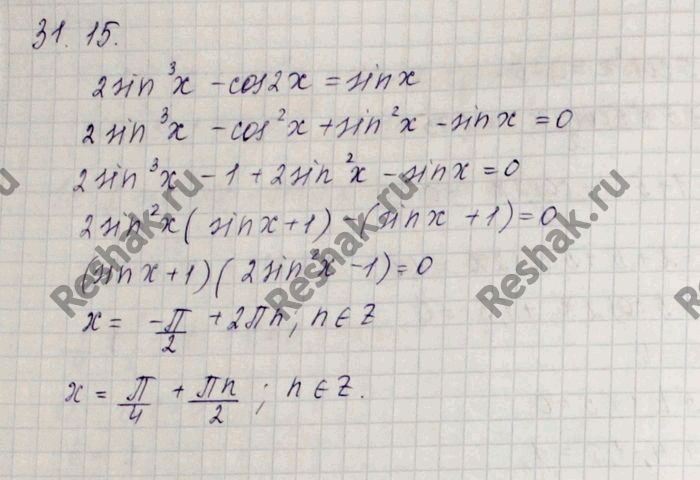 31.15.
2sin³x - cos2x = sinx
2sin³x - cos²x + sin²x - sinx = 0
2sin³x - 1 + 2sin²x - sinx = 0
2sin²x( sinx+1) - (sinx +1) = 0
(sinx+1)( 2sin²x - 1) = 0
x = -π/2 + 2πn, n ∈ Z
x = π/4 + πn/2 ; n ∈ Z.
Reshak.ru
Reshak.ru
Reshak.ru